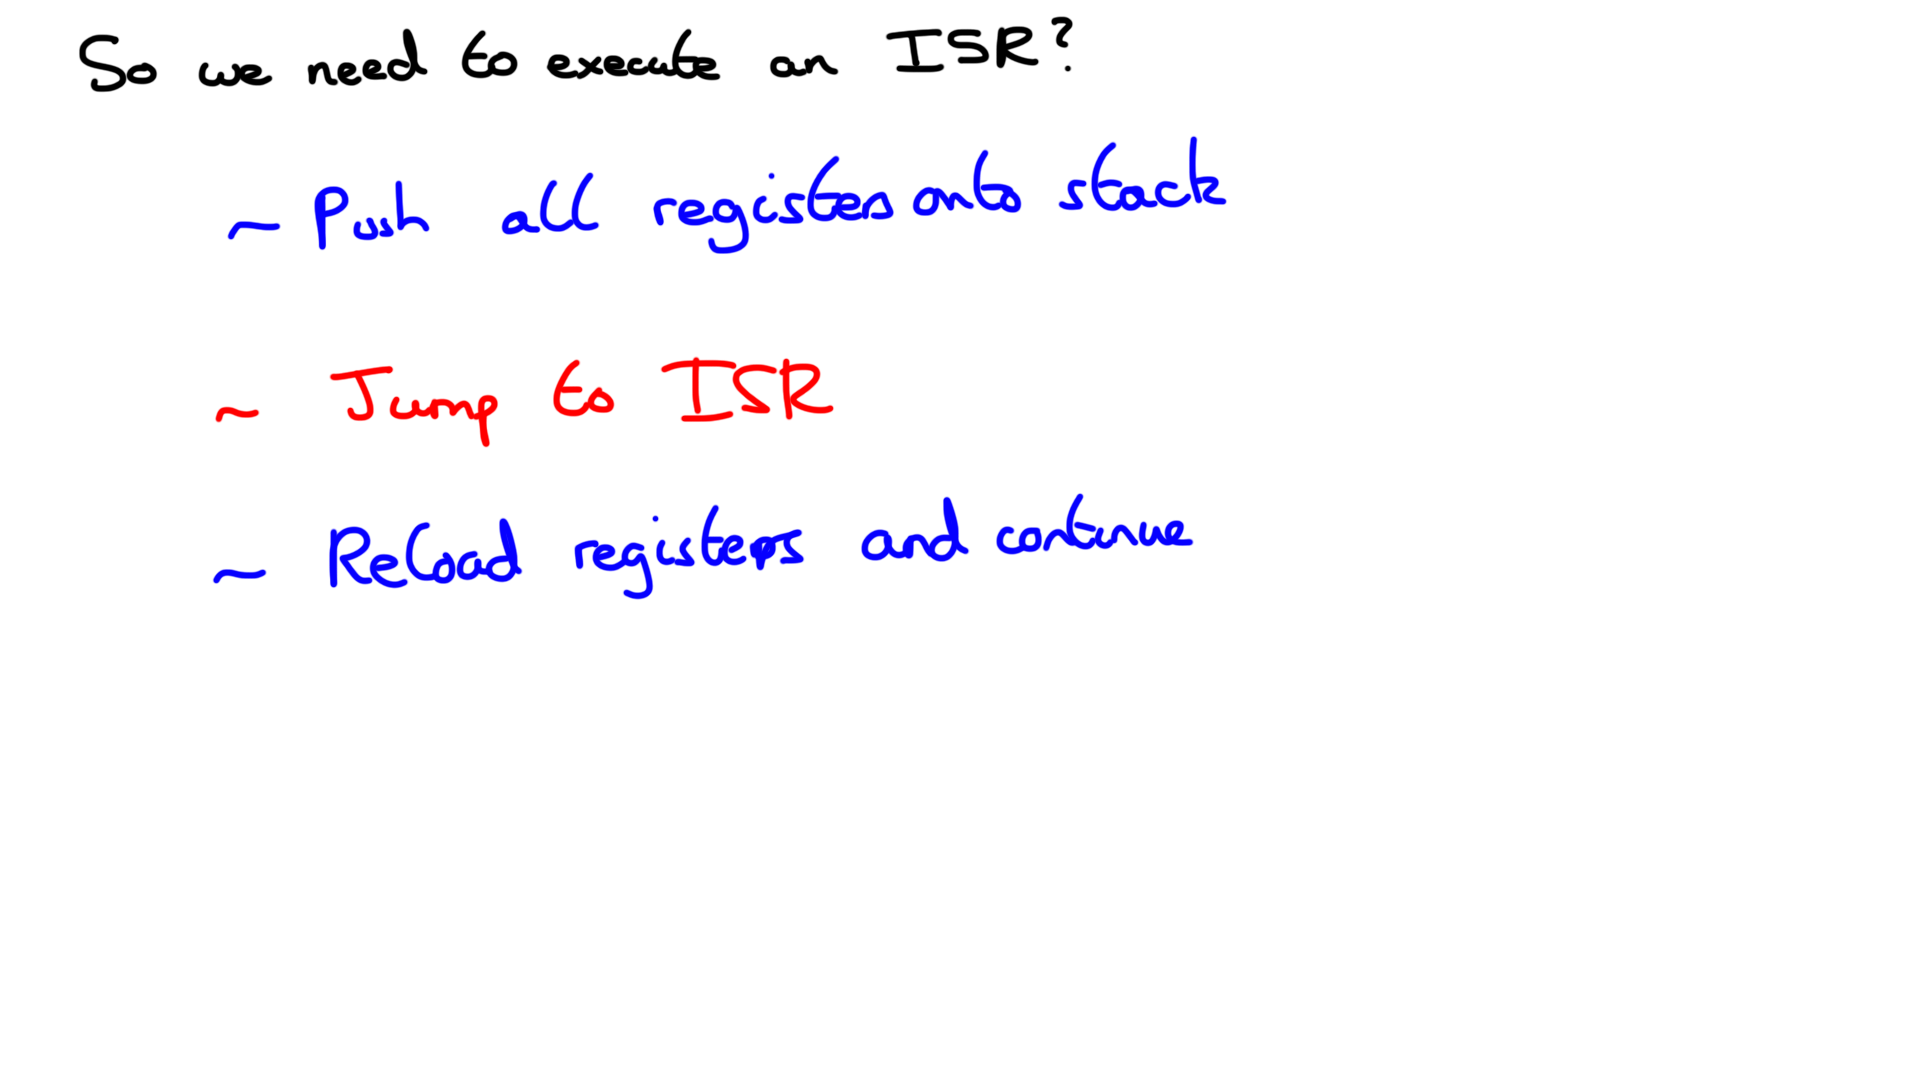 So we need to execute an ISR?
~ Push all registers onto stack
~ Jump to ISR
~ Reload registers and continue